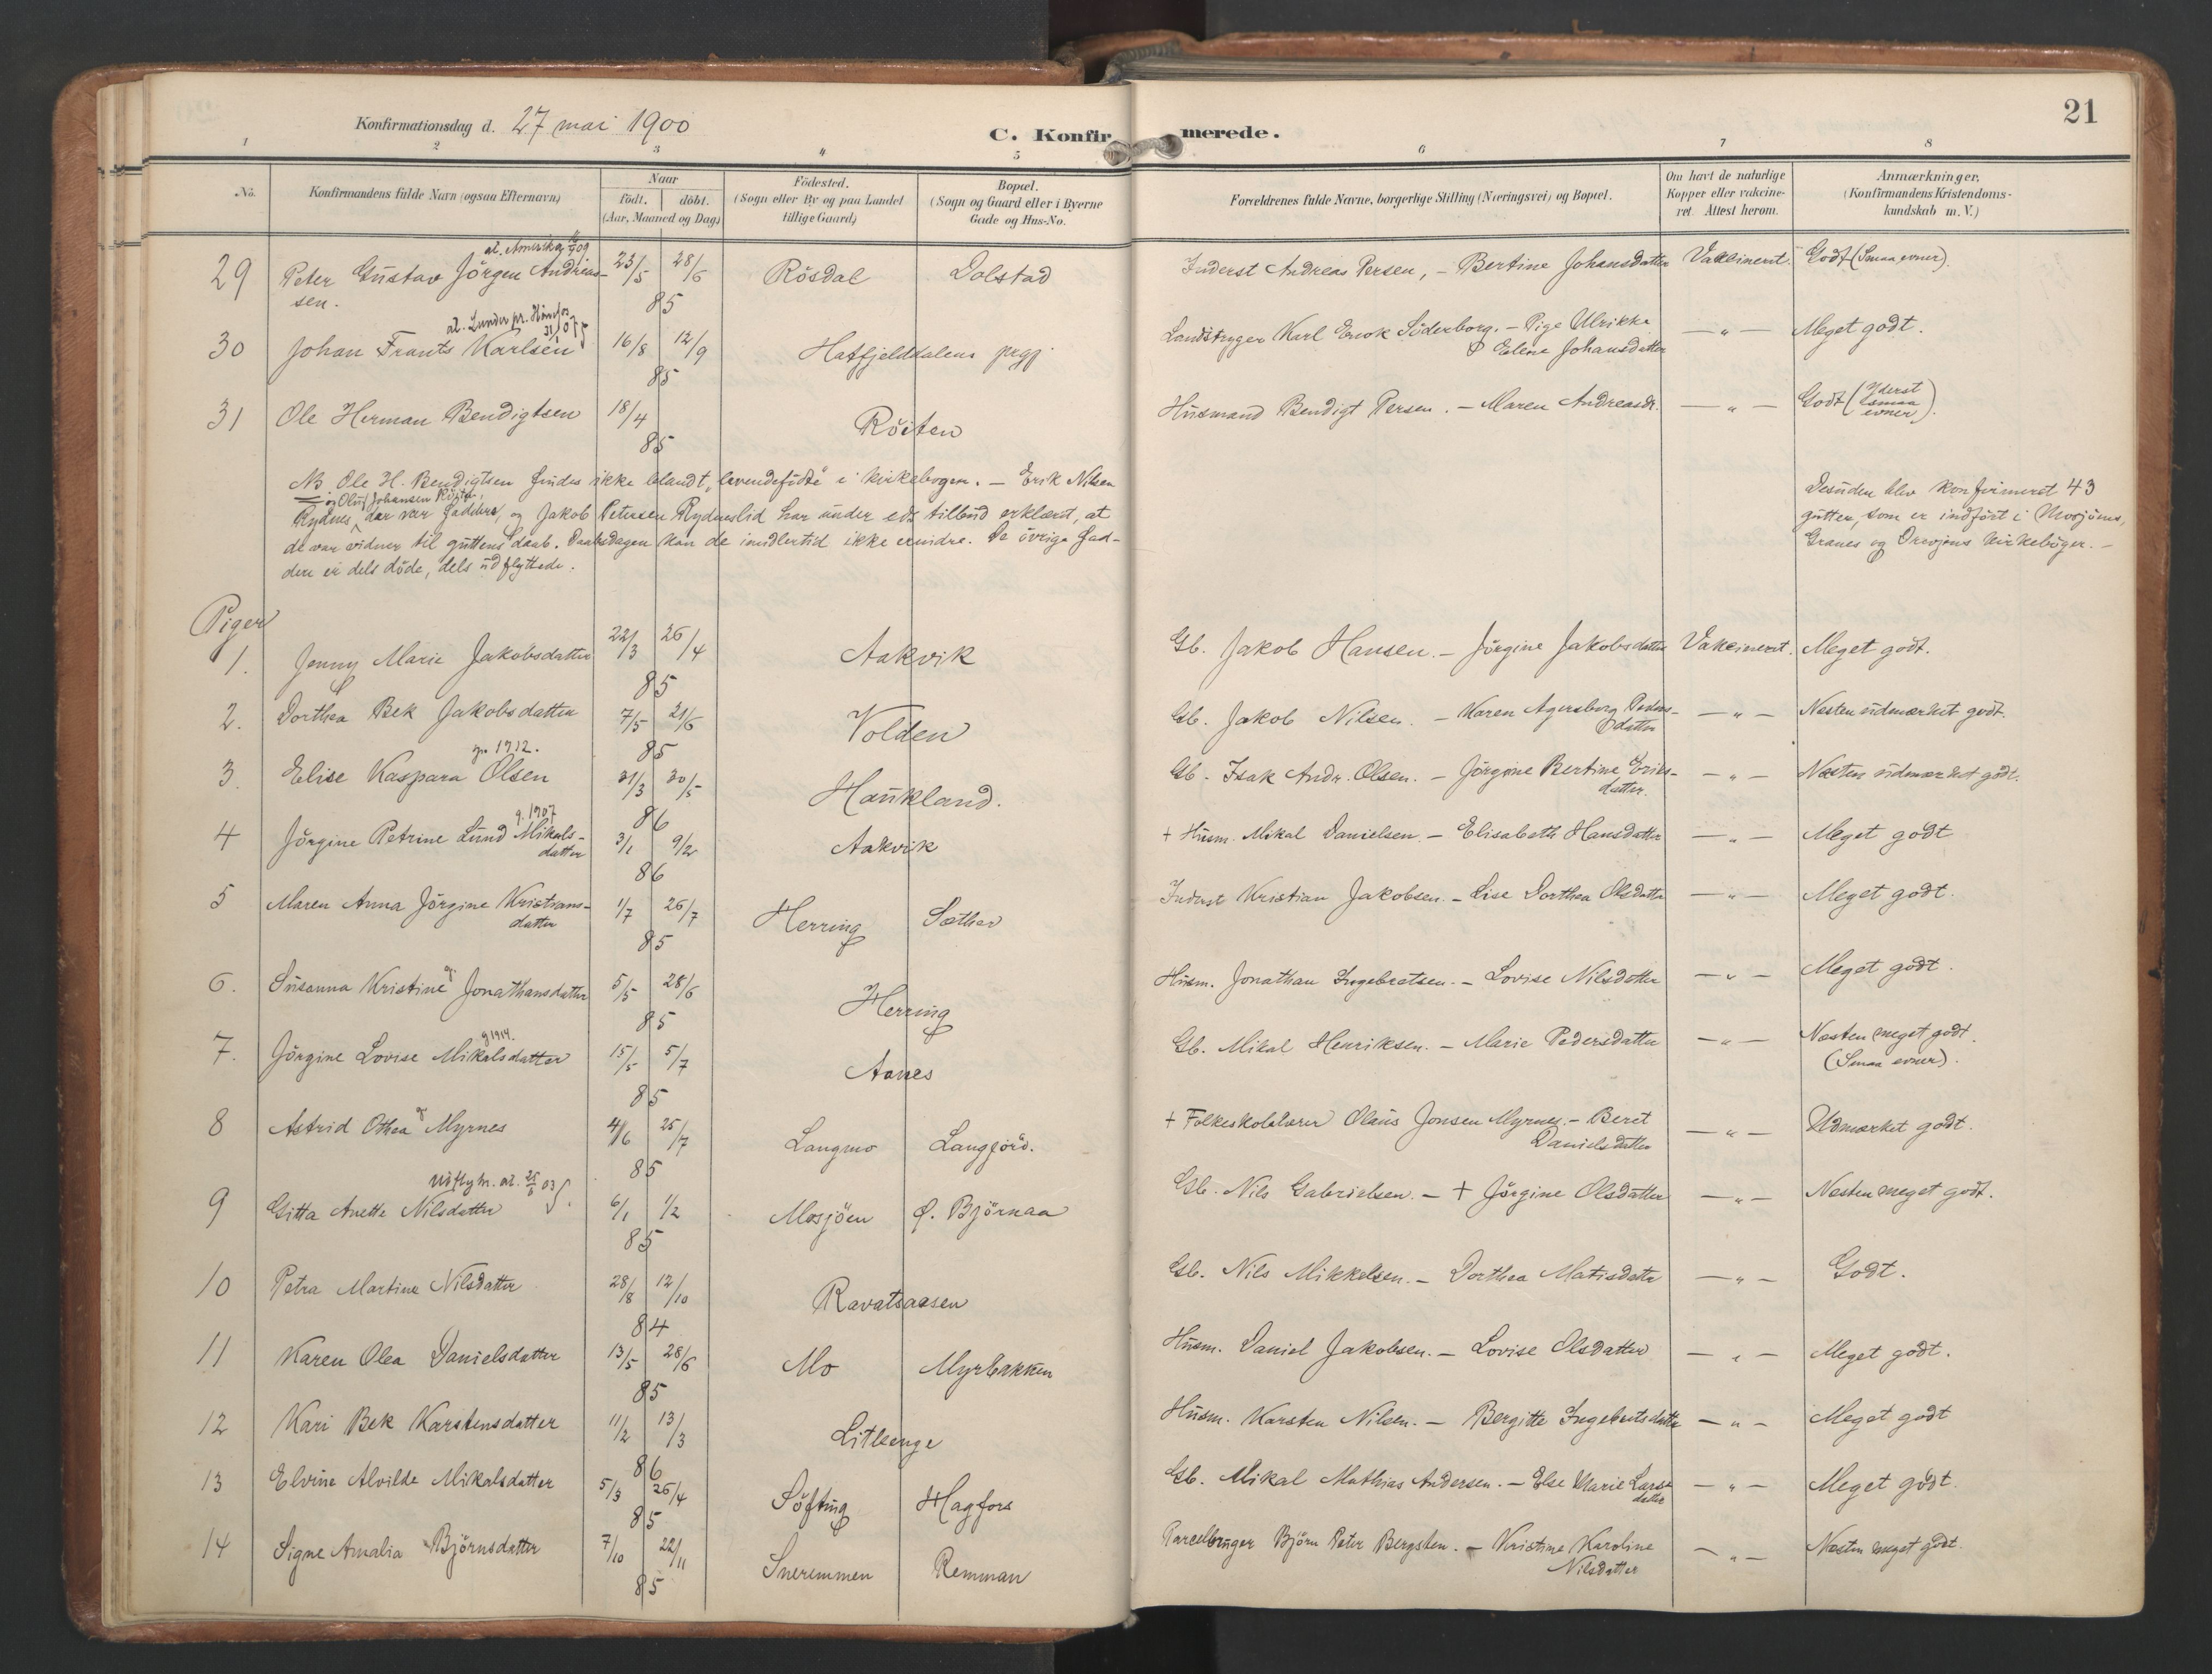 Konfirmationsdag d. 27 mai 1900
C. Konfirmerede.
21
1 2 3 4 5 6 7 8
No.
Konfirmandens fulde Navn (ogsaa Efternavn)
Naar
födt. döbt.
(Aar, Maaned og Dag)
Födested.
(Sogn eller By og paa Landet
tillige Gaard)
Bopæl.
(Sogn og Gaard eller i Byerne
Gade og Hus-No.
Forældrenes fulde Navne, borgerlige Stilling (Næringsvei) og Bopæl.
Om havt de naturlige
Kopper eller vakcine-
ret. Attest herom.
Anmærkninger,
(Konfirmandens Kristendoms-
kundskab m. V.)
at. Amerika 09
29 Peter Gustav Jörgen Andreas- 23/5 28/6 Rösdal Dolstad Inderst Andreas Persen, - Bertine Johansdatter Vakcineret. Godt (Smaa evner).
sen. 85
at. Lunder pr. Hönefos
31/ 07
30 Johan Frants Karlsen 16/8 12/9 Hatfjelddalens prgj. Landstryger Karl Enok Söderborg. - Pige Ulrikke — " — Meget godt.
85 Elene Johansdatter
31 Ole Herman Bendigtsen 18/4 Rösten Husmand Bendigt Persen. - Maren Andreasdr. — " — Godt (Yderst smaa evner).
85
NB Ole H. Bendigtsen findes ikke blandt "levendefödte" i kirkebogen. - Erik Nilsen
og Oluf Johansen
Rydnes, der var faddere, og Jakob Petersen Rydneslid har under eds tilbud erklæret, at
de var vidner til guttens daab. Daabsdagen kan de imidlertid ikke erindre. De övrige fad-
dere er dels döde, dels udflyttede.
Desuden blev konfirmeret 43
gutter, som er indfört i Mosjöens,
Granes og Drevjens kirkeböger. -
Piger
1. Jenny Marie Jakobsdatter 22/3 26/4 Aakvik Gb. Jakob Hansen. - Jörgine Jakobsdatter Vakcineret. Meget godt.
85
2. Dorthea Bek Jakobsdatter 7/5 21/6 Volden Gb. Jakob Nilsen. - Karen Agersborg Peders- — " — Næsten udmærket godt.
85 datter
g. 1912.
3. Elise Kaspara Olsen 31/3 30/5 Haukland. Gb. Isak Andr. Olsen. - Jörgine Bertine Eriks- — " — Næsten udmærket godt.
86 datter.
g. 1907
4 Jörgine Petrine Lund Mikals- 3/1 9/2 Aakvik + Husm. Mikal Danielsen. - Elisabeth Hansdatter — " — Meget godt
datter 86
5 Maren Anna Jörgine Kristians- 1/7 26/7 Herring Sæther Inderst Kristian Jakobsen. - Lise Dorthea Olsdatter — " — Meget godt.
datter 85
6. Susanna Kristine Jonathansdatter 5/5 28/6 Herring Husm. Jonathan Ingebretsen. - Lovise Nilsdatter — " — Meget godt.
g. 85
g 1914.
7. Jörgine Lovise Mikalsdatter 15/5 5/7 Aanes Gb. Mikal Henriksen. - Marie Pedersdatter — " — Næsten meget godt.
85 (Smaa evner).
8 Astrid Othea Myrnes 4/6 25/7 Langmo Langjord. + Folkeskolelærer Olaus Jonsen Myrnes. - Beret — " — Udmærket godt.
g 85 Danielsdatter
Udflytn. at. 25/5 03
9 Gitta Anette Nilsdatter 6/1 1/2 Mosjöen Ö. Björnaa Gb. Nils Gabrielsen. - + Jörgine Olsdatter — " — Næsten meget godt.
85
10 Petra Martine Nilsdatter 28/8 12/10 Ravatsaasen Gb. Nils Mikkelsen. - Dorthea Matisdatter — " — Godt.
84
11 Karen Olea Danielsdatter 13/5 28/6 Mo Myrbakken Husm. Daniel Jakobsen. - Lovise Olsdatter — " — Meget godt.
85
12 Kari Bek Karstensdatter 11/2 13/3 Litlenge Husm. Karsten Nilsen. - Bergitte Ingebretsdatter — " — Meget godt
86
13 Elvine Alvilde Mikalsdatter 5/3 26/4 Söfting Hagfors Gb. Mikal Mathias Andersen. - Else Marie Lars- — " — Meget godt.
85 datter
14 Signe Amalia Björnsdatter 7/10 22/11 Sneremmen Remman Parcelbruger Björn Peter Bergsten. - Kristine Karoline — " — Næsten meget godt.
85 Nilsdatter